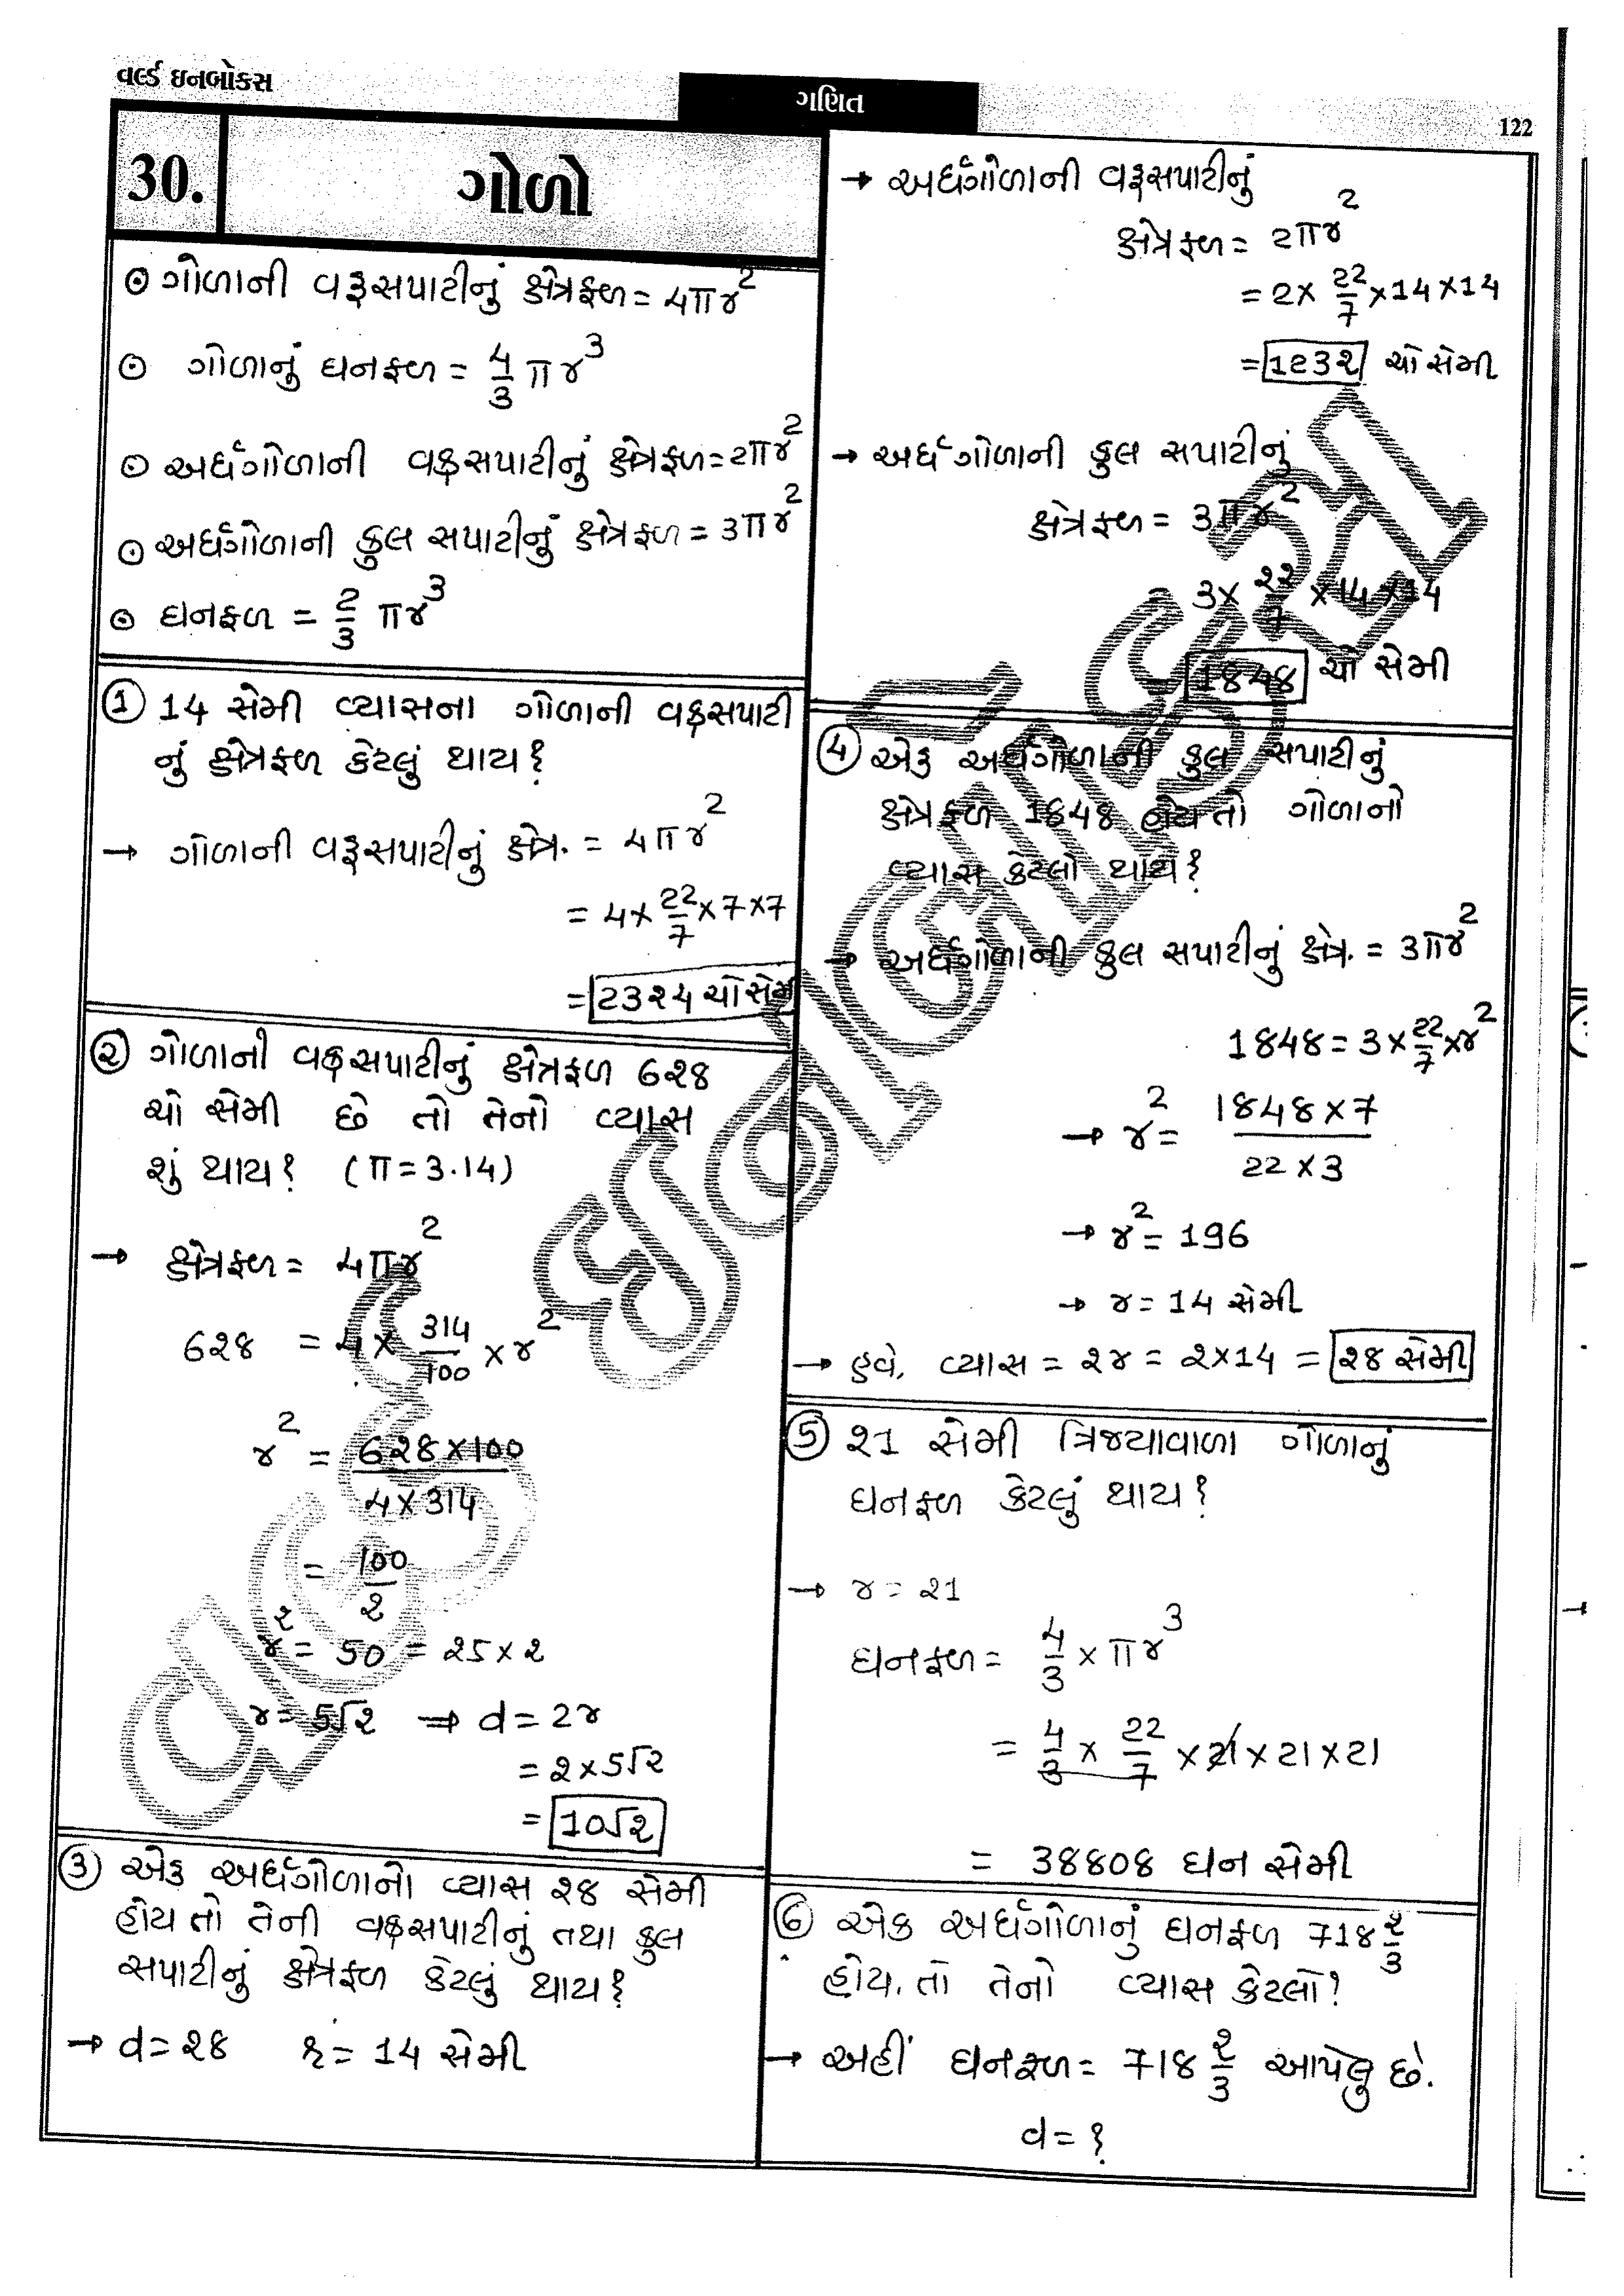 વર્લ્ડ ઇનબોક્સ
ગણિત
122
30.
ગોળો
⊙ ગોળાની વક્રસપાટીનું ક્ષેત્રફળ = 4πr²
⊙ ગોળાનું ઘનફળ = 4/3 πr³
⊙ અર્ધગોળાની વક્રસપાટીનું ક્ષેત્રફળ = 2πr²
⊙ અર્ધગોળાની કુલ સપાટીનું ક્ષેત્રફળ = 3πr²
⊙ ઘનફળ = 2/3 πr³
① 14 સેમી વ્યાસના ગોળાની વક્રસપાટી
નું ક્ષેત્રફળ કેટલું થાય?
→ ગોળાની વક્રસપાટીનું ક્ષેત્ર. = 4πr²
= 4 × 22/7 × 7 × 7
= 2324 ચો સેમી
② ગોળાની વક્રસપાટીનું ક્ષેત્રફળ 6૨8
ચો સેમી છે તો તેનો વ્યાસ
શું થાય? (π = 3.14)
→ ક્ષેત્રફળ = 4πr²
6૨8 = 4 × 314/100 × r²
r² = 6૨8 × 100 / 4 × 314
= 100/૨
r² = 50 = 25 × 2
r = 5√૨ → d = 2r
= ૨ × 5√૨
= 10√૨
③ એક અર્ધગોળાનો વ્યાસ ૨8 સેમી
હોય તો તેની વક્રસપાટીનું તથા કુલ
સપાટીનું ક્ષેત્રફળ કેટલું થાય?
→ d = ૨8 ત્રિ = 14 સેમી
→ અર્ધગોળાની વક્રસપાટીનું
ક્ષેત્રફળ = 2πr²
= 2 × 22/7 × 14 × 14
= 1232 ચો સેમી
→ અર્ધગોળાની કુલ સપાટીનું
ક્ષેત્રફળ = 3πr²
= 3 × ૨૨/7 × 14 × 14
1848 ચો સેમી
④ એક અર્ધગોળાની કુલ સપાટીનું
ક્ષેત્રફળ 1848 હોય તો ગોળાનો
વ્યાસ કેટલો થાય?
→ અર્ધગોળાની કુલ સપાટીનું ક્ષેત્ર. = 3πr²
1848 = 3 × 22/7 × r²
→ r² = 1848 × 7 / 22 × 3
→ r² = 196
→ r = 14 સેમી
→ હવે, વ્યાસ = ૨r = ૨ × 14 = ૨8 સેમી
⑤ ૨1 સેમી ત્રિજ્યાવાળા ગોળાનું
ઘનફળ કેટલું થાય?
→ r = ૨1
ઘનફળ = 4/3 × πr³
= 4/3 × 22/7 × 21 × 21 × 21
= 38808 ઘન સેમી
⑥ એક અર્ધગોળાનું ઘનફળ 718 ૨/3
હોય, તો તેનો વ્યાસ કેટલો?
→ અહીં ઘનફળ = 718 ૨/3 આપેલુ છે.
d = ?